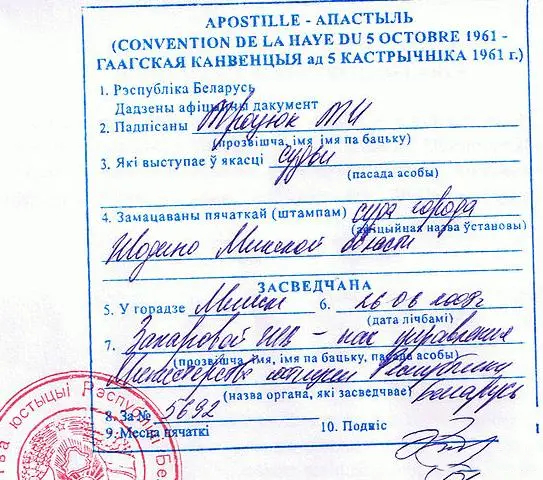 APOSTILLE - АПАСТЫЛЬ
(CONVENTION DE LA HAYE DU 5 OCTOBRE 1961 -
ГААГСКАЯ КАНВЕНЦЫЯ ад 5 КАСТРЫЧНІКА 1961 г.)
1. Рэспубліка Беларусь
Дадзены афіцыйны дакумент
2. Падпісаны
(прозвішча, імя, імя па бацьку)
3. Які выступае ў якасці судьи
(пасада асобы)
4. Замацаваны пячаткай (штампам) суда города
(афіцыйная назва ўстановы)
Жодино Минской области
ЗАСВЕДЧАНА
5. У горадзе Минск 6. 26 06 2008г
(дата лічбамі)
7. Захаровой - нач управления
(прозвішча, імя, імя па бацьку, пасада асобы)
Министерства юстиции Республики
(назва органа, які засведчвае) Беларусь
8. За № 5692
9. Месца пячаткі 10. Подпіс
юстыцыі Рэспублікі Бе